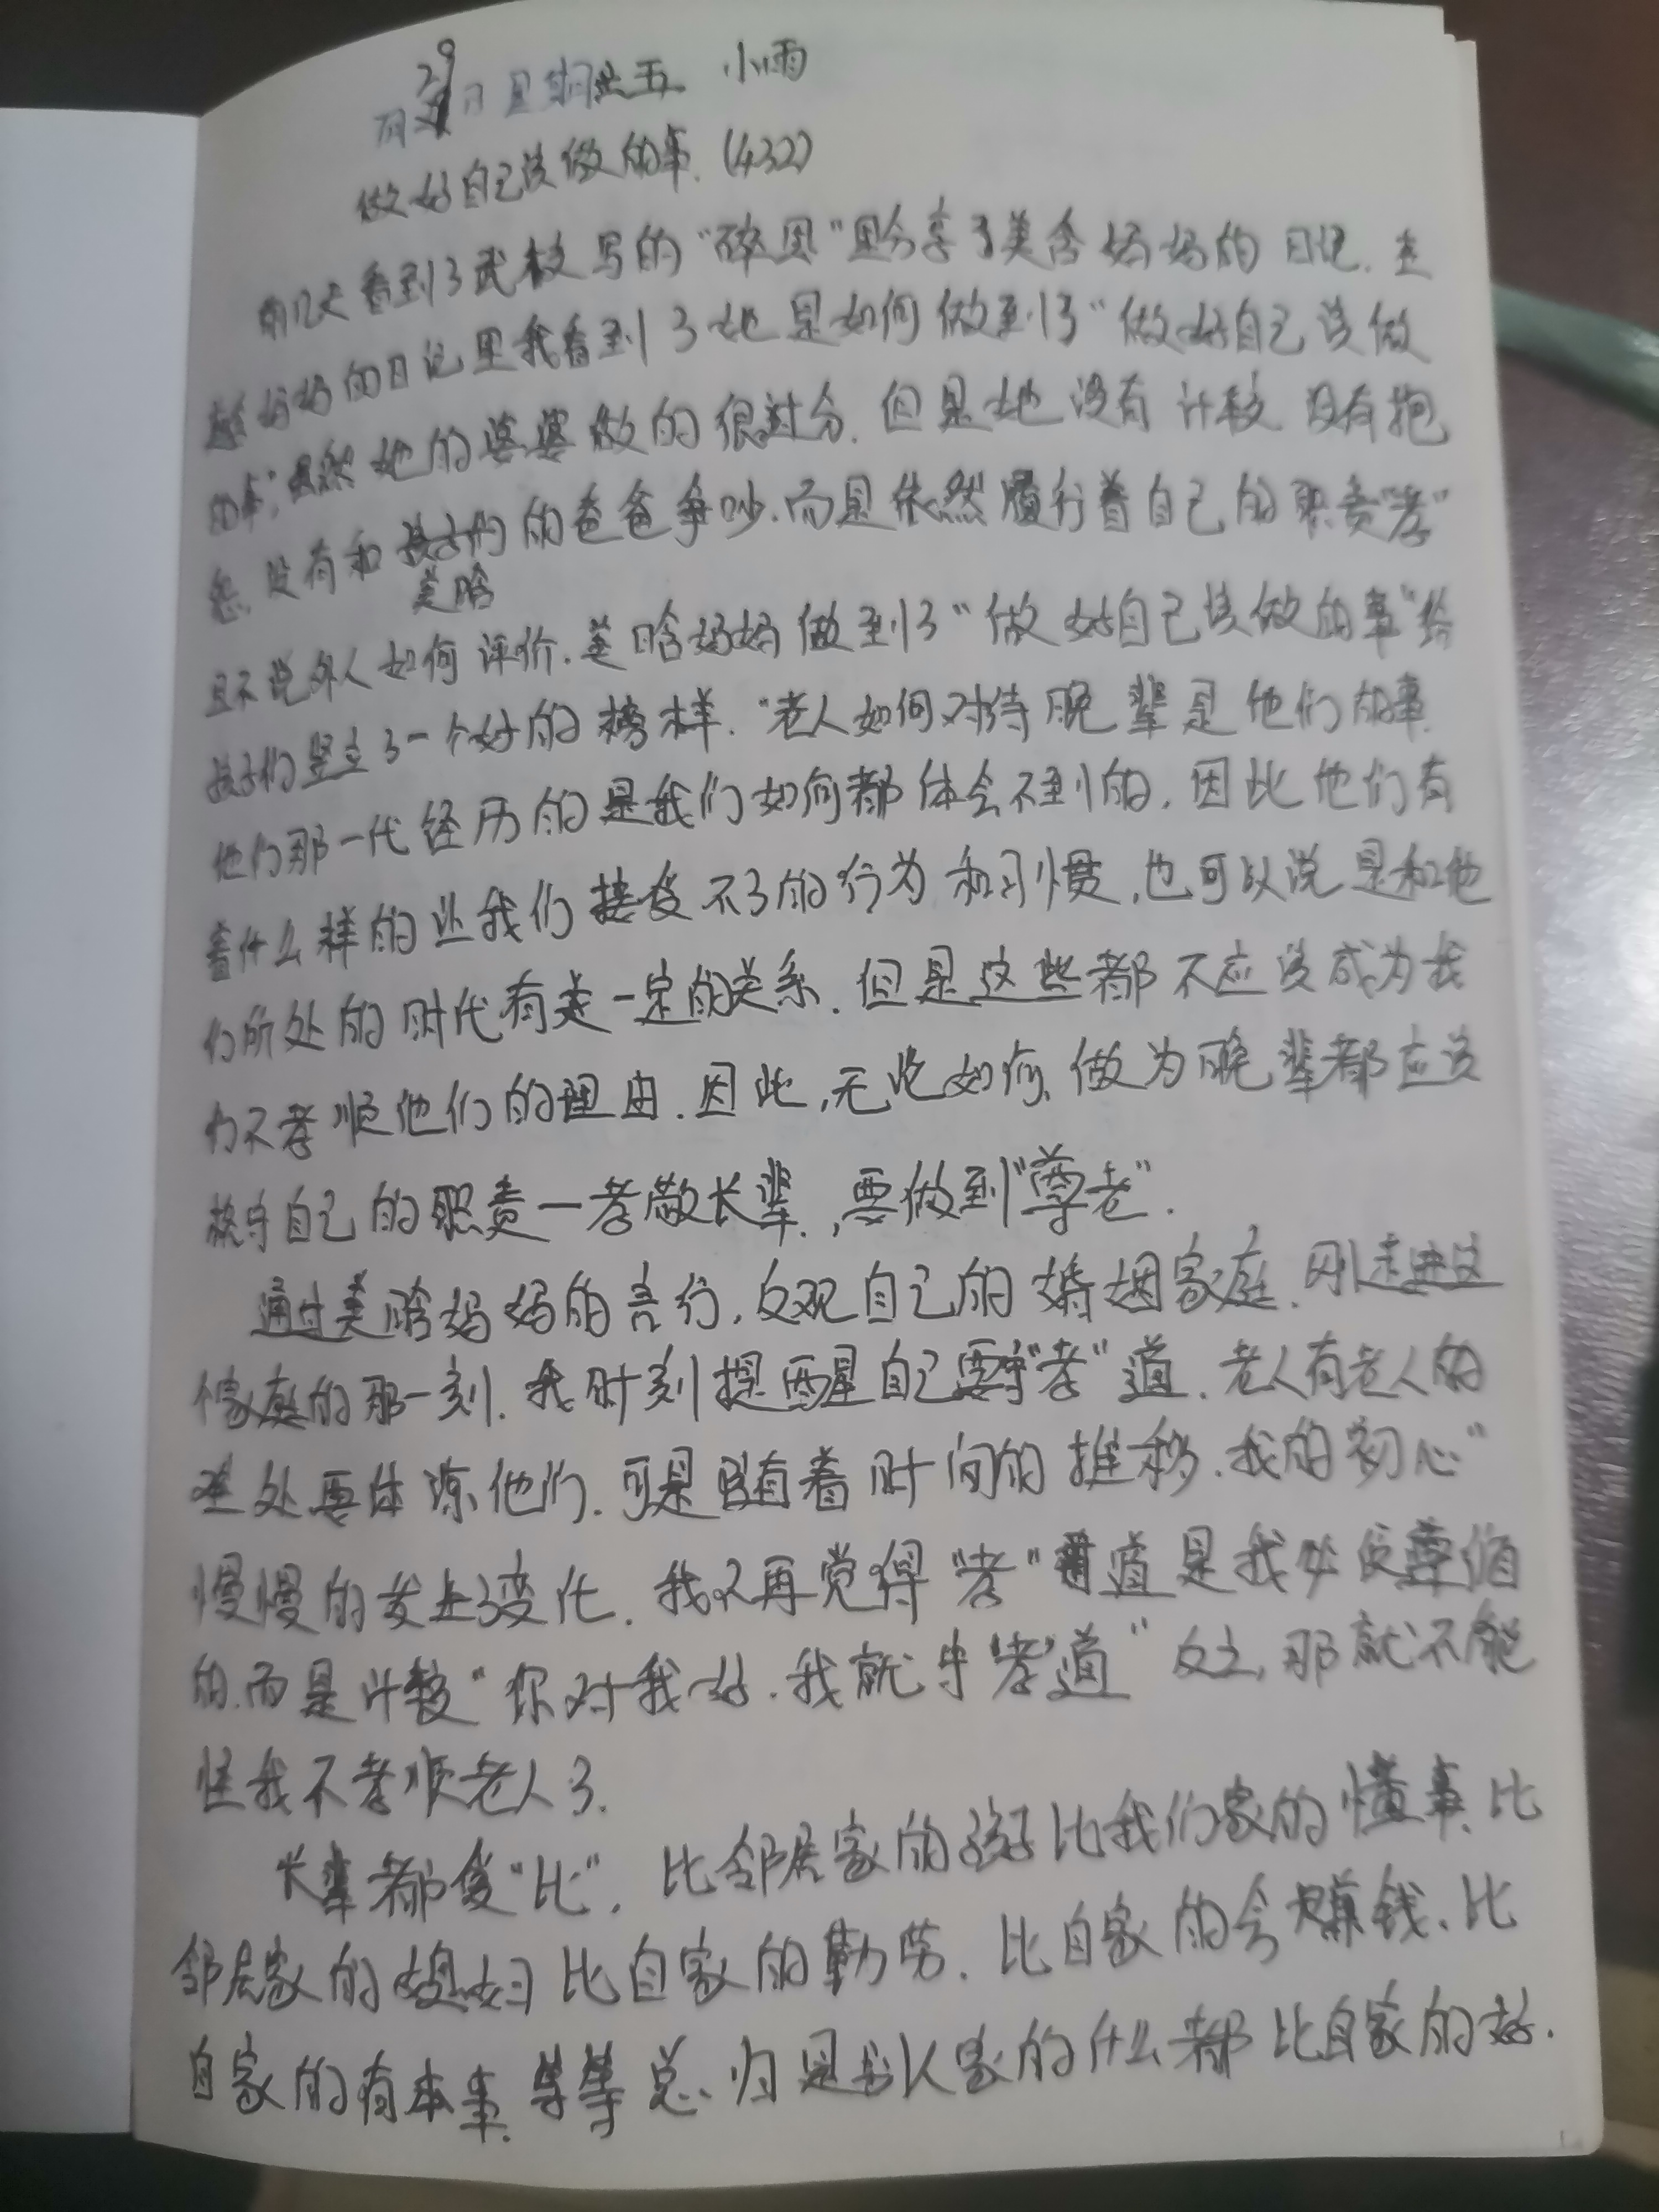 29日星期五 小雨
做好自己该做的事.(432)
前几天看到了武校写的“碎思”里分享了美含妈妈的日记.在
妈妈的日记里我看到了她是如何做到了“做好自己该做
的事”,虽然她的婆婆做的很过分.但是她没有计较没有抱
怨.没有和孩子们的爸爸争吵.而是依然履行着自己的职责“孝”
美晗
且不说外人如何评价.美晗妈妈做到了“做好自己该做的事”给
孩子们竖立了一个好的榜样.“老人如何对待晚辈是他们的事.
他们那一代经历的是我们如何都体会不到的.因此他们有
着什么样的让我们接受不了的行为和习惯,也可以说是和他
们所处的时代有着一定的关系.但是这些都不应该成为我
们不孝顺他们的理由.因此,无论如何、做为晚辈都应该
自己的职责一孝敬长辈.,要做到“尊老”.
通过美晗妈妈的言行,反观自己的婚姻家庭.刚走进这
个家庭的那一刻.我时刻提醒自己要守“孝”道.老人有老人的
难处要体谅他们.可是随着时间的推移.我的初心”
慢慢的发生了变化.我不再觉得“孝”道是我必须遵循
的.而是计较“你对我好.我就守“孝道”反之,那就不能
怪我不孝顺老人了.
长辈都爱“比”.比邻居家的孩子比我们家的懂事.比
邻居家的媳妇比自家的勤劳.比自家的会赚钱.比
自家的有本事.等等总归是别人家的什么都比自家的好.